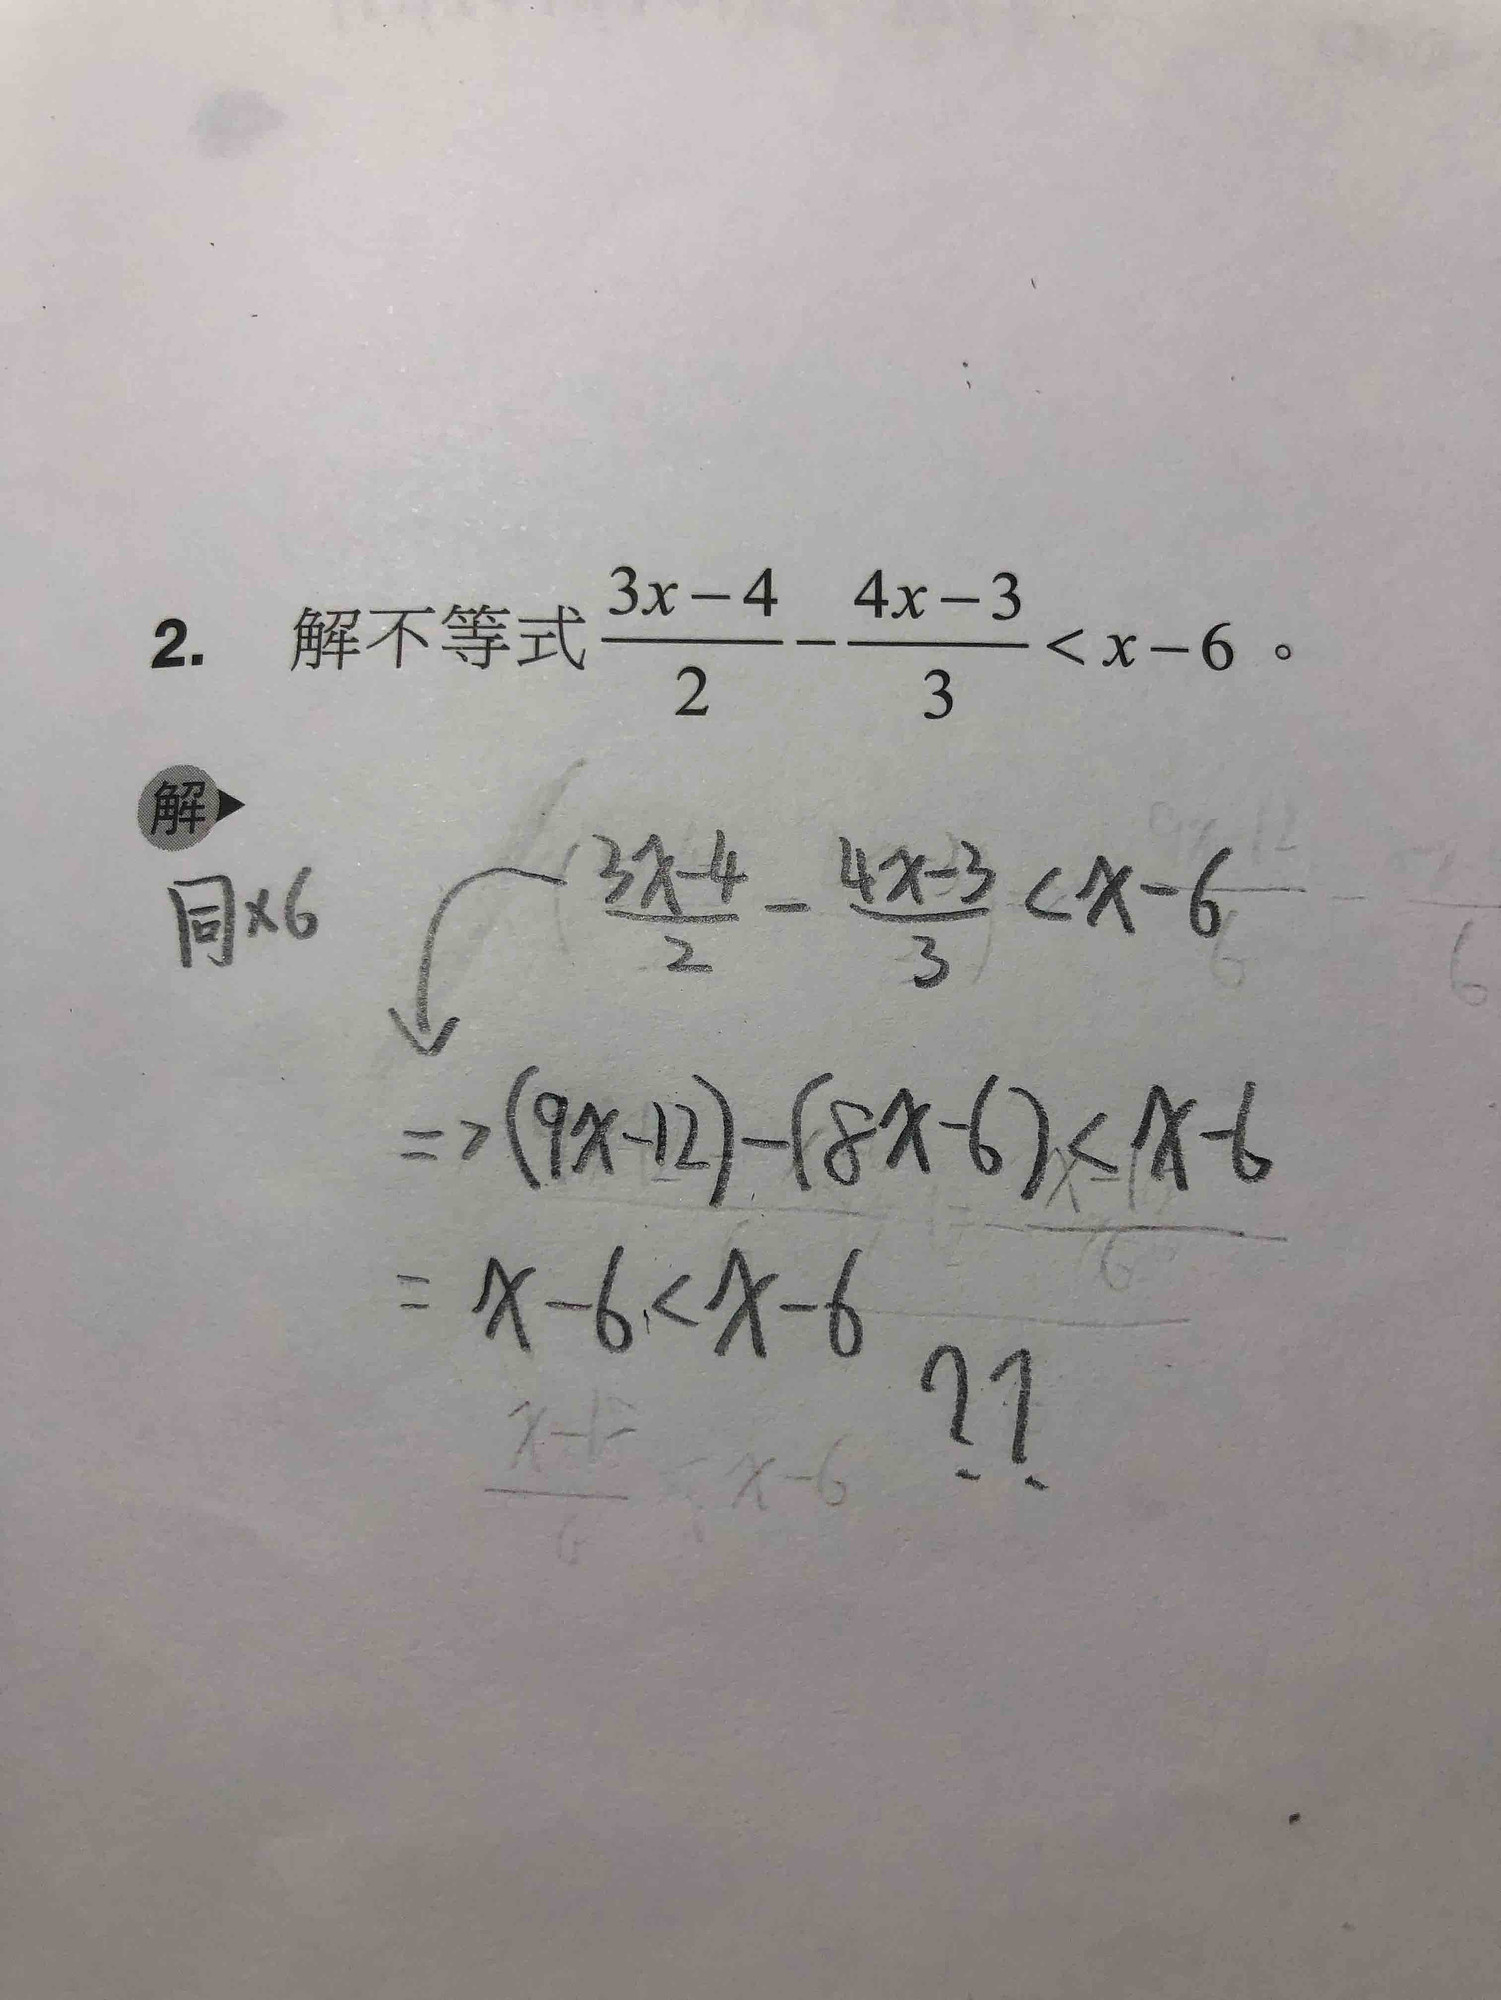 2. 解不等式 \frac{3x-4}{2} - \frac{4x-3}{3} < x-6。
解
同×6 \frac{3x-4}{2} - \frac{4x-3}{3} < x-6
=> (9x-12)-(8x-6) < x-6
= x-6 < x-6
??